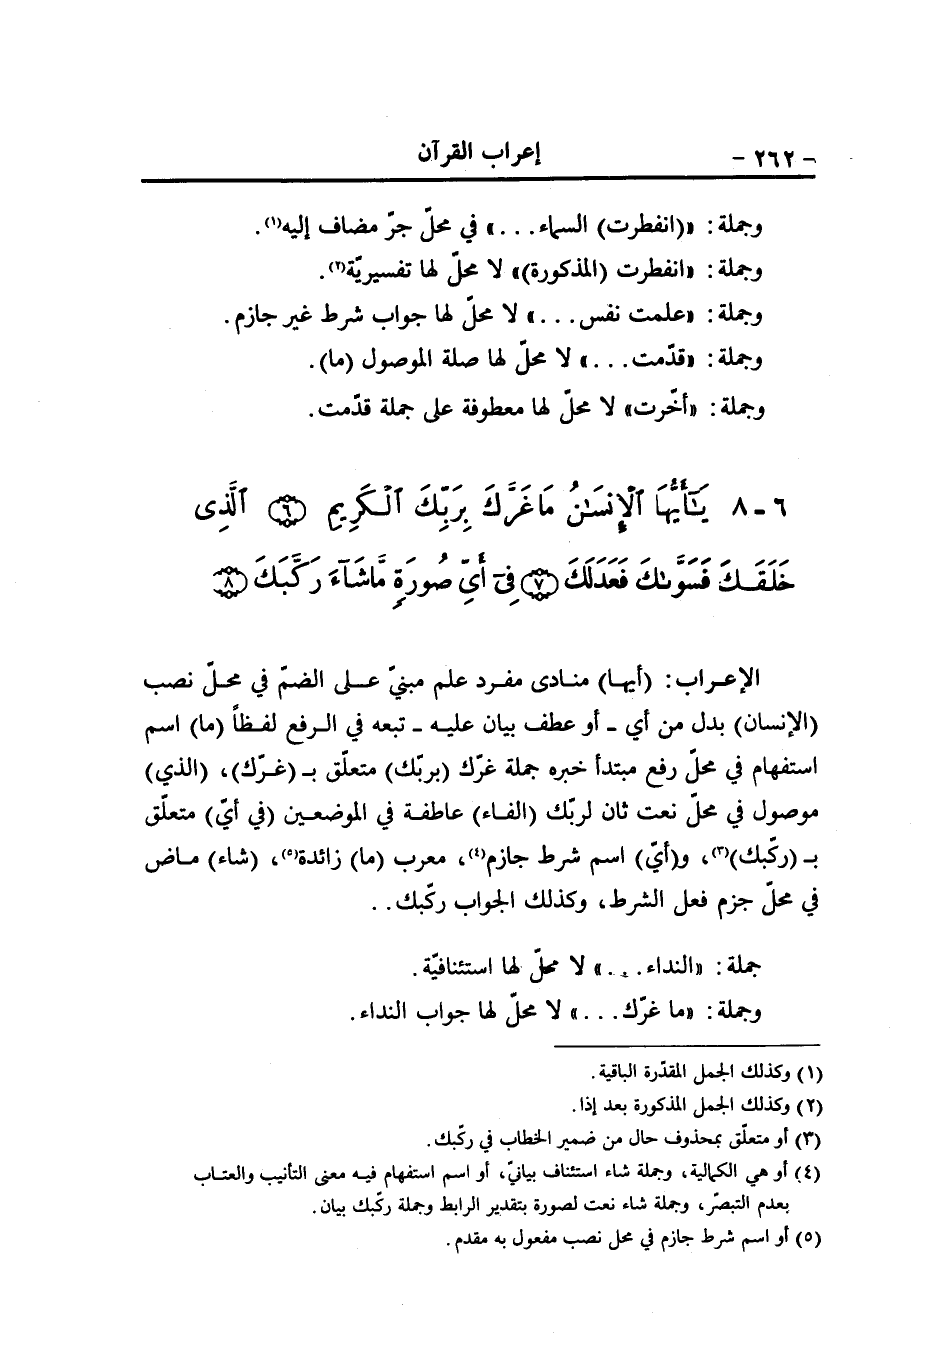 - ٢٦٢ - إعراب القرآن
وجملة: «(انفطرت) السماء...» في محلّ جرّ مضاف إليه(١).
وجملة: «انفطرت (المذكورة)» لا محلّ لها تفسيريّة(٢).
وجملة: «علمت نفس...» لا محلّ لها جواب شرط غير جازم.
وجملة: «قدّمت...» لا محلّ لها صلة الموصول (ما).
وجملة: «أخّرت» لا محلّ لها معطوفة على جملة قدّمت.
٦ - ٨ يَٰٓأَيُّهَا ٱلْإِنسَٰنُ مَا غَرَّكَ بِرَبِّكَ ٱلْكَرِيمِ ۝٦ ٱلَّذِى
خَلَقَكَ فَسَوَّىٰكَ فَعَدَلَكَ ۝٧ فِىٓ أَىِّ صُورَةٍ مَّا شَآءَ رَكَّبَكَ ۝٨
الإعراب: (أيها) منادى مفرد علم مبنيّ على الضمّ في محلّ نصب
(الإنسان) بدل من أي - أو عطف بيان عليه - تبعه في الرفع لفظاً (ما) اسم
استفهام في محلّ رفع مبتدأ خبره جملة غرّك (بربّك) متعلّق بـ (غرّك)، (الذي)
موصول في محلّ نعت ثان لربّك (الفاء) عاطفة في الموضعين (في أيّ) متعلّق
بـ (ركّبك)(٣)، و(أيّ) اسم شرط جازم(٤)، معرب (ما) زائدة(٥)، (شاء) ماض
في محلّ جزم فعل الشرط، وكذلك الجواب ركّبك..
جملة: «النداء...» لا محلّ لها استئنافيّة.
وجملة: «ما غرّك...» لا محلّ لها جواب النداء.
(١) وكذلك الجمل المقدّرة الباقية.
(٢) وكذلك الجمل المذكورة بعد إذا.
(٣) أو متعلّق بمحذوف حال من ضمير الخطاب في ركّبك.
(٤) أو هي الكمالية، وجملة شاء استئناف بيانيّ، أو اسم استفهام فيه معنى التأنيب والعتاب
بعدم التبصّر، وجملة شاء نعت لصورة بتقدير الرابط وجملة ركّبك بيان.
(٥) أو اسم شرط جازم في محل نصب مفعول به مقدم.